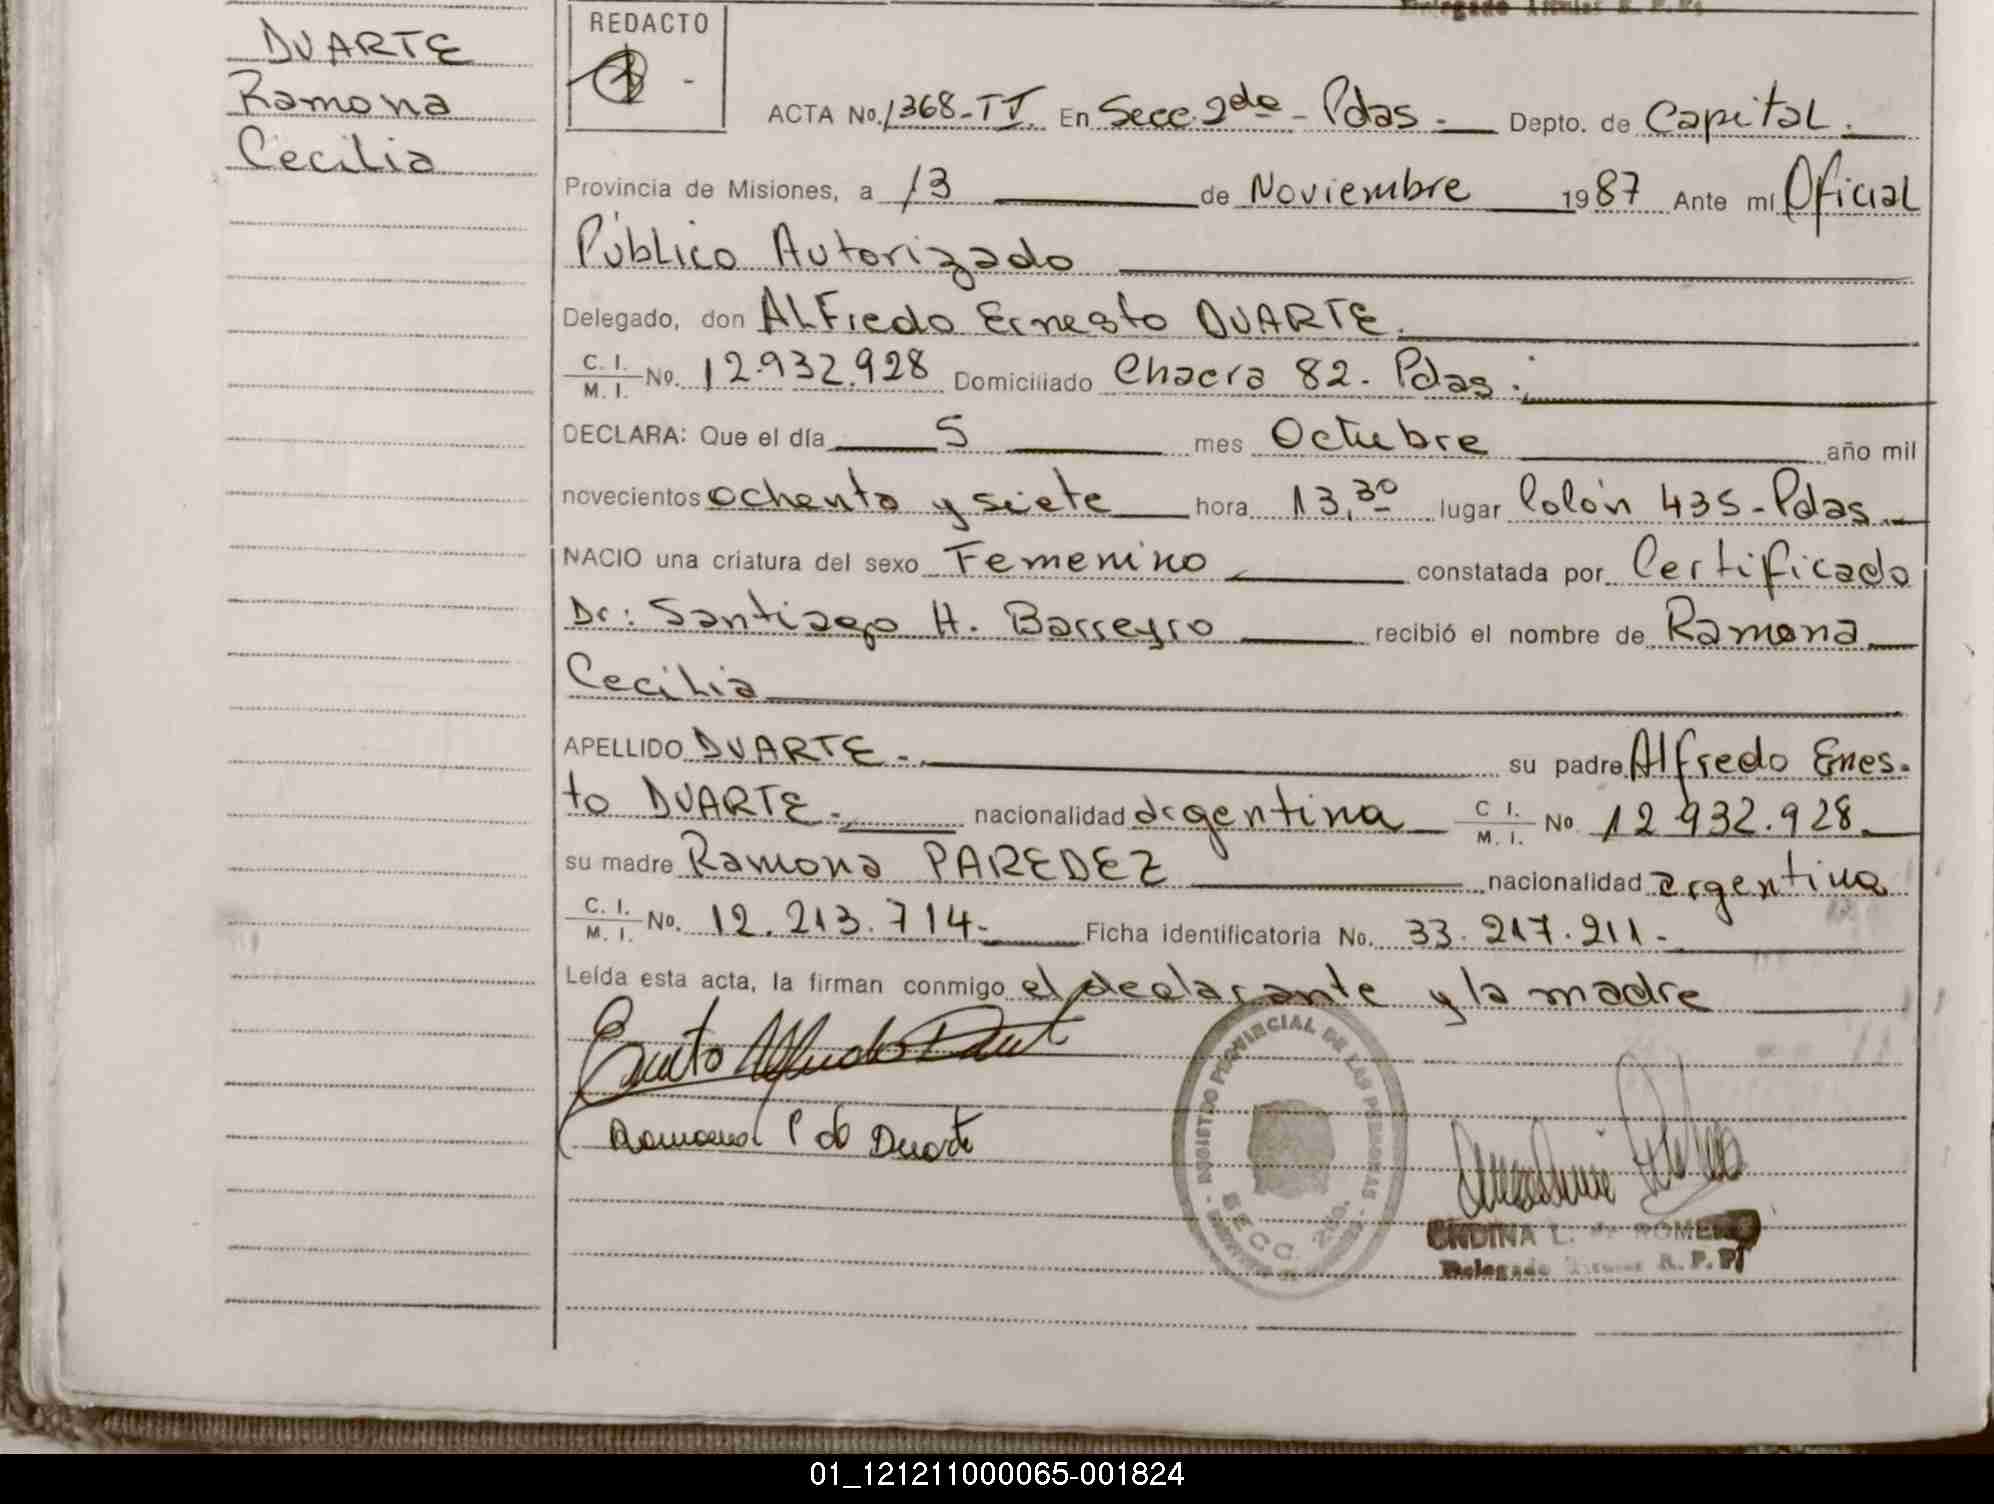 DUARTE
Ramona
Cecilia
REDACTO
ACTA No. 1368-TV. En Secc. 2da - Pdas. Depto. de Capital.
Provincia de Misiones, a 13 de Noviembre 1987 Ante mí Oficial
Público Autorizado
Delegado, don ALFredo Ernesto DUARTE.
C. I.
M. I. No. 12.932.928 Domiciliado Chacra 82. Pdas.
DECLARA: Que el día 5 mes Octubre año mil
novecientos ochenta y siete hora 13,30 lugar Colón 435-Pdas.
NACIO una criatura del sexo Femenino constatada por Certificado
Dr: Santiago H. Barreyro recibió el nombre de Ramona
Cecilia
APELLIDO DUARTE. su padre Alfredo Ernes-
to DUARTE. nacionalidad argentina C I.
M. I. No 12 932.928.
su madre Ramona PAREDEZ nacionalidad argentina
C. I.
M. I. No. 12.213.714- Ficha identificatoria No. 33.217.211-
Leída esta acta, la firman conmigo el declarante y la madre
Ernesto Alfredo Duart
Ramona P de Duarte
REGISTRO PROVINCIAL DE LAS PERSONAS
SECC. 2da.
ONDINA L. de ROMERO
Delegado Titular R. P. P.
01_121211000065-001824